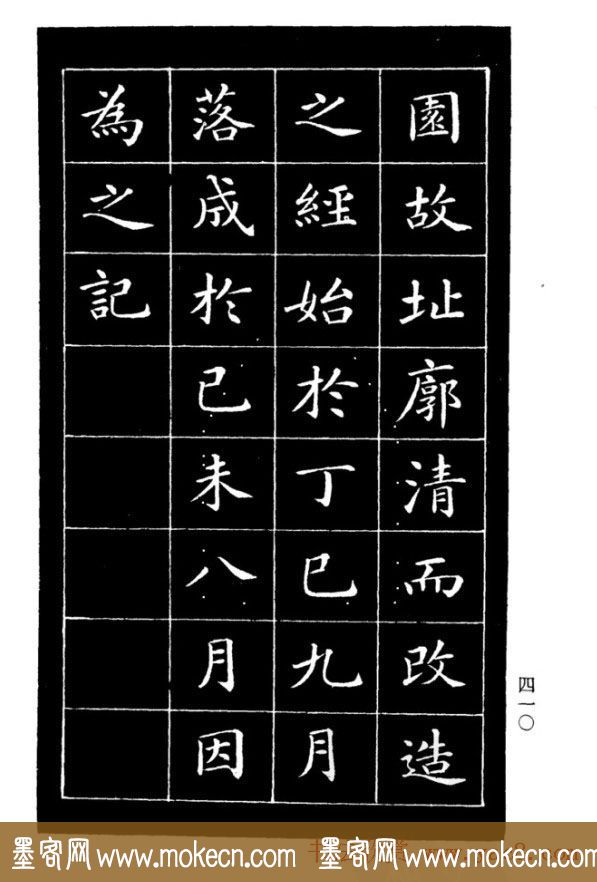 園故址廓清而改造
之經始於丁巳九月
落成於已未八月因
為之記
四一〇
墨客网 www.mokecn.com 墨客网 www.mokecn.com